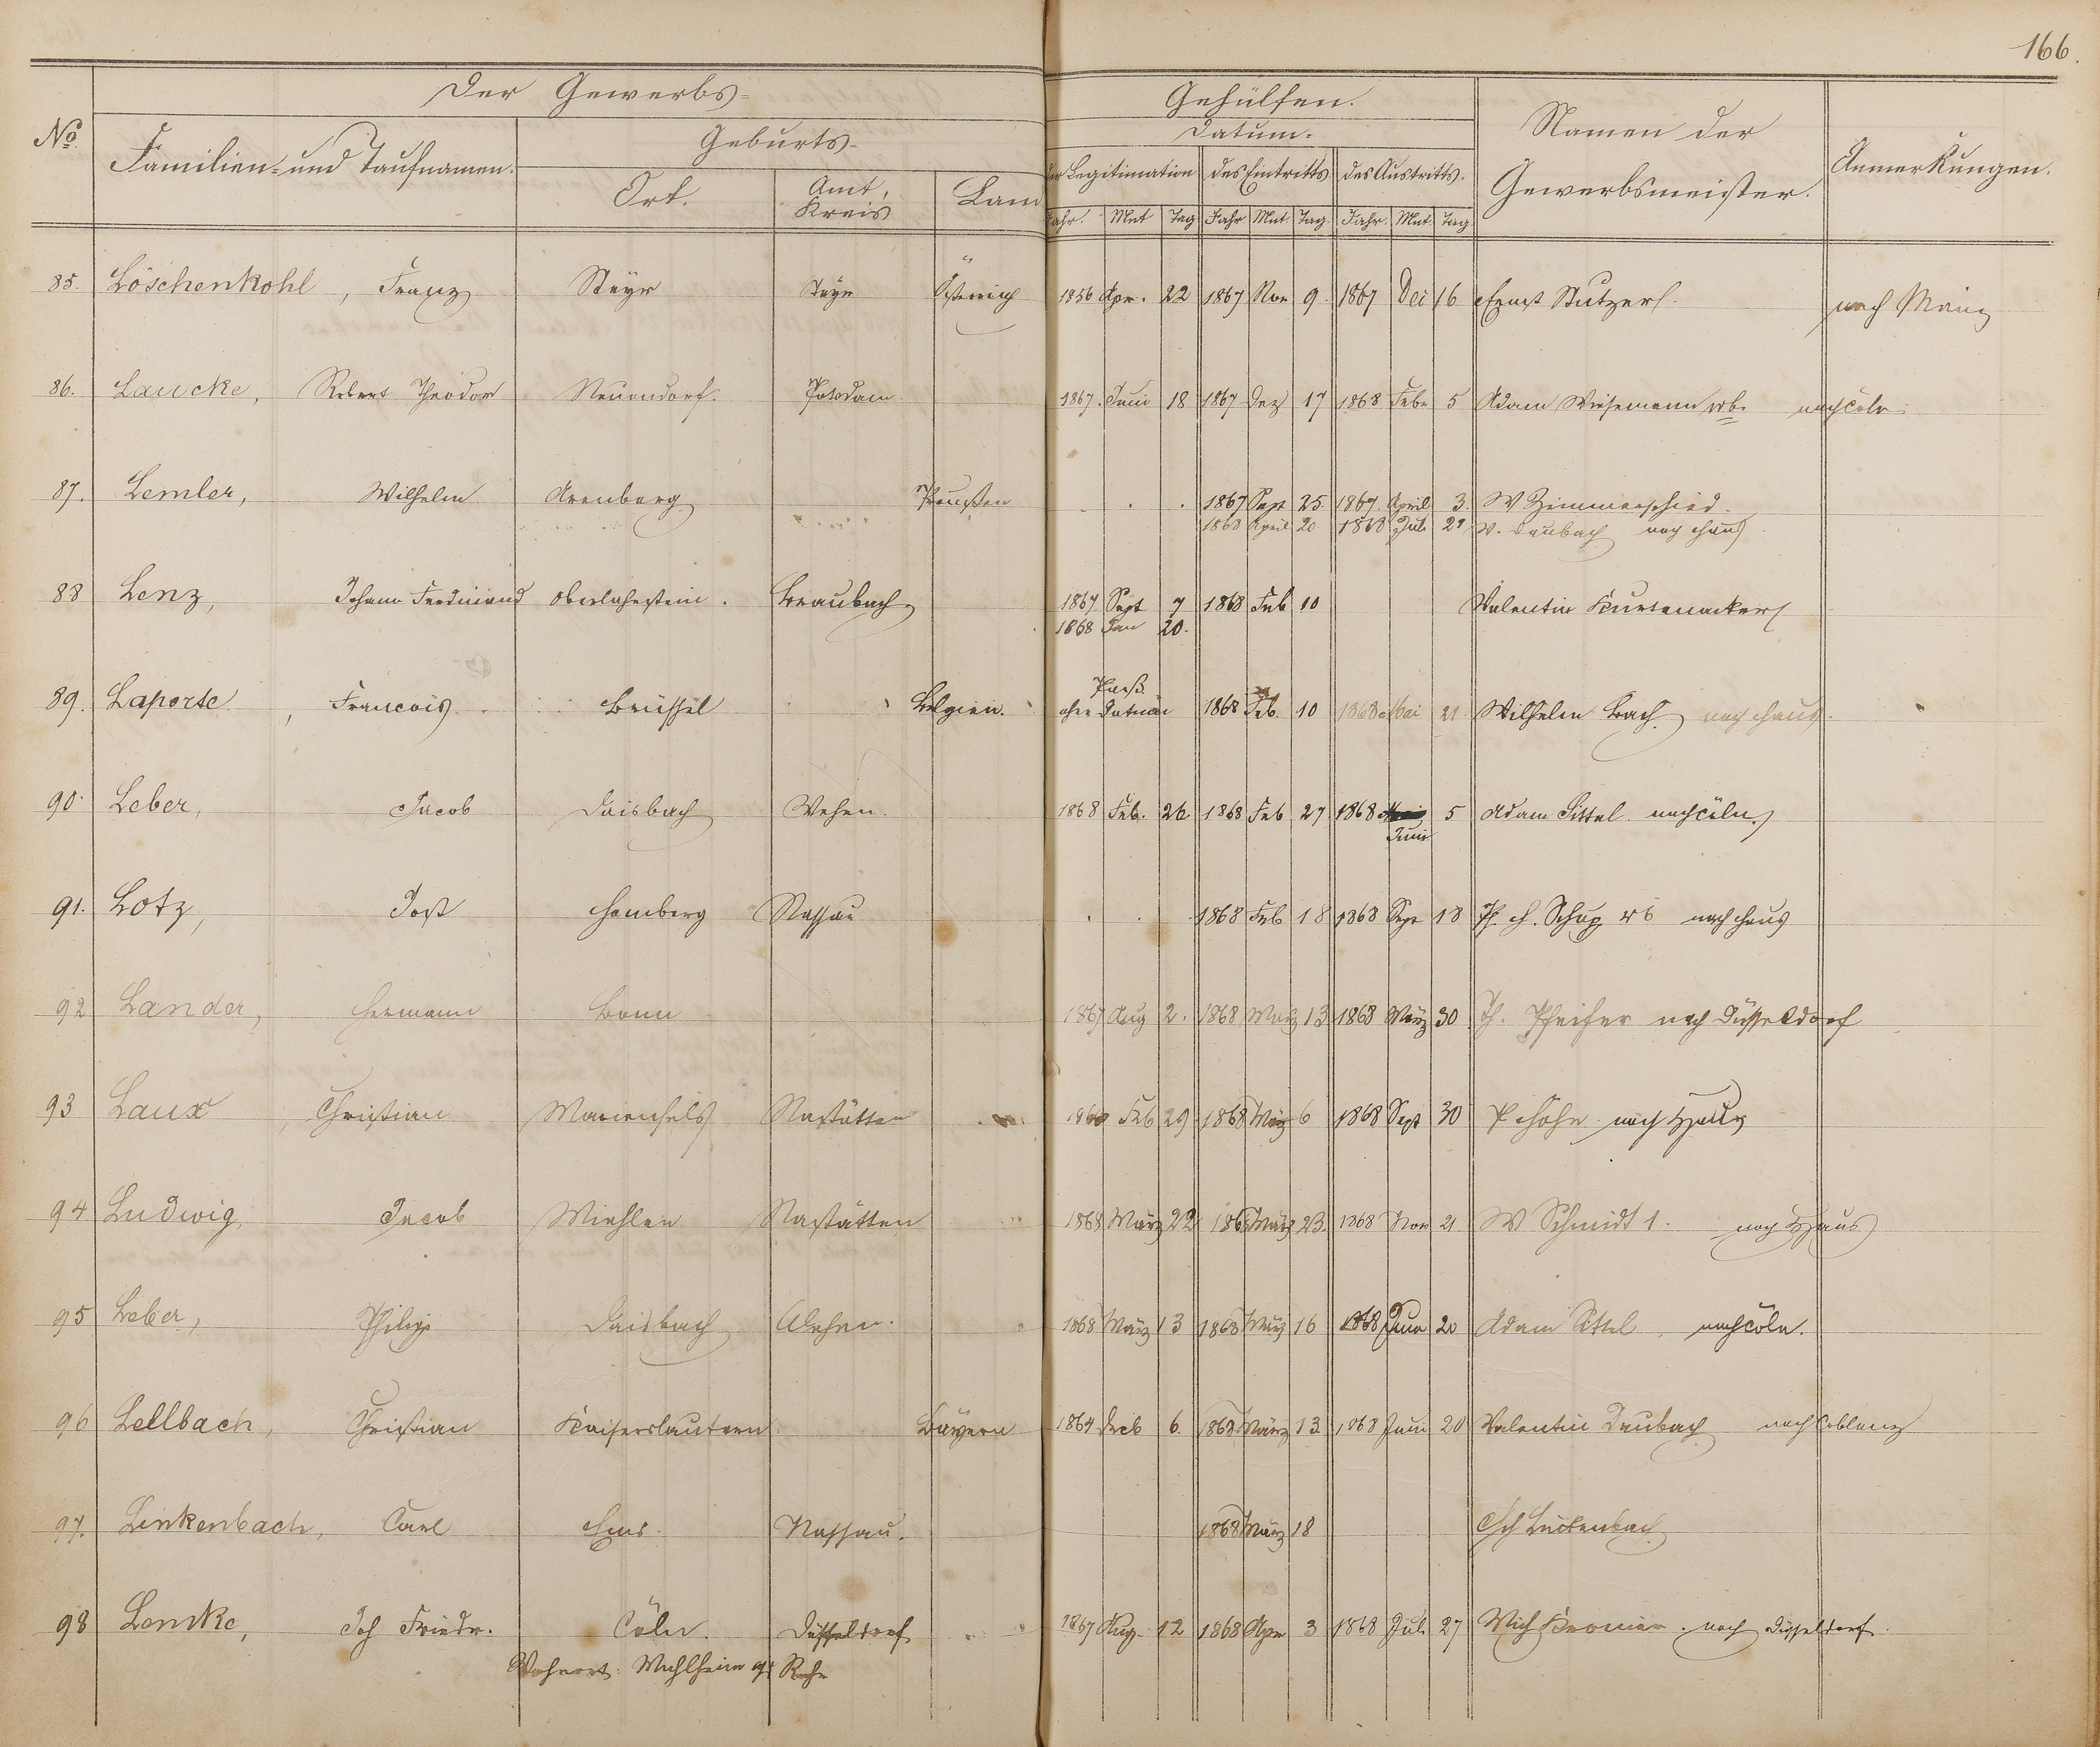 166.
Der Gewerbs- Gehülfen.
No. Familien- und Taufnamen. Geburts- Datum- Namen der Gewerbsmeister. Anmerkungen.
Ort. Amt, Kreis Land der Legitimation des Eintritts des Austritts.
Jahr. Mnt Tag Jahr Mnt Tag. Jahr. Mnt. Tag
85. Löschenkohl, Franz Steyr Steyr Österreich 1856 Apr. 22 1867 Nov 9. 1867 Dec 16 Ernst Stutzer nach Mainz
86. Laucke, Robert Theodor Neuendorf. Potsdam 1867. Juni 18 1867 Dez 17 1868 Febr 5 Adam Wisemann wb. nach Cöln
87. Lemler, Wilhelm Arenberg Preußen 1867 Sept 25. 1867. April 3. W Zimmerschied.
1868 April 20 1868 Juli 29 W. Daubach nach Haus
88 Lenz, Johann Ferdinand Oberlahnstein. Braubach 1867 Sept 7 1868 Feb 10 Valentin Kurtenacker
1868 Jan 20.
89. Laporte, Francois. Brüssel Belgien. Paß ohne Datum 1868 Feb. 10 1868 Mai 21 Wilhelm Bach. nach Haus.
90. Leber, Jacob Daisbach Wehen. 1868 Feb. 26 1868 Feb 27 1868 5 Adam Sittel. nach Cöln.
Juni
91. Lotz, Jost Homberg Nassau 1868 Feb 18 1868 Sept 18 Ph. H. Schup wb nach Haus
92 Lander, Hermann Bonn 1867 Aug 2. 1868 März 13 1868 März 30 Ph. Pfeifer nach Düsseldorf
93 Laux, Christian Marienfels Nastätten Feb 29 1868 März 6 1868 Sept 30 P Hohn. nach Haus
94 Ludwig, Jacob Miehlen Nastätten 1868 März 22 1868 März 23. 1868 Nov 21 W Schmidt 1. nach Haus
95 Leber, Philipp Daisbach Wehen. 1868 März 13 1868 März 16 1868 Juni 20 Adam Sittel, nach Cöln.
96 Lellbach, Christian Kaiserslautern Bayern 1864 Dceb 6. 1868 März 13. 1868 Juni 20 Valentin Daubach nach Coblenz
97. Linkenbach, Carl Ems. Nassau. 1868 März 18 Linkenbach
98 Lemke, Joh Friedr. Cöln. Düsseldorf 1867 Aug. 12 1868 Apr 3 1868 Juli 27 Mich Kronier. nach Düsseldorf.
Wohnort: Mühlheim a/ Ruhr